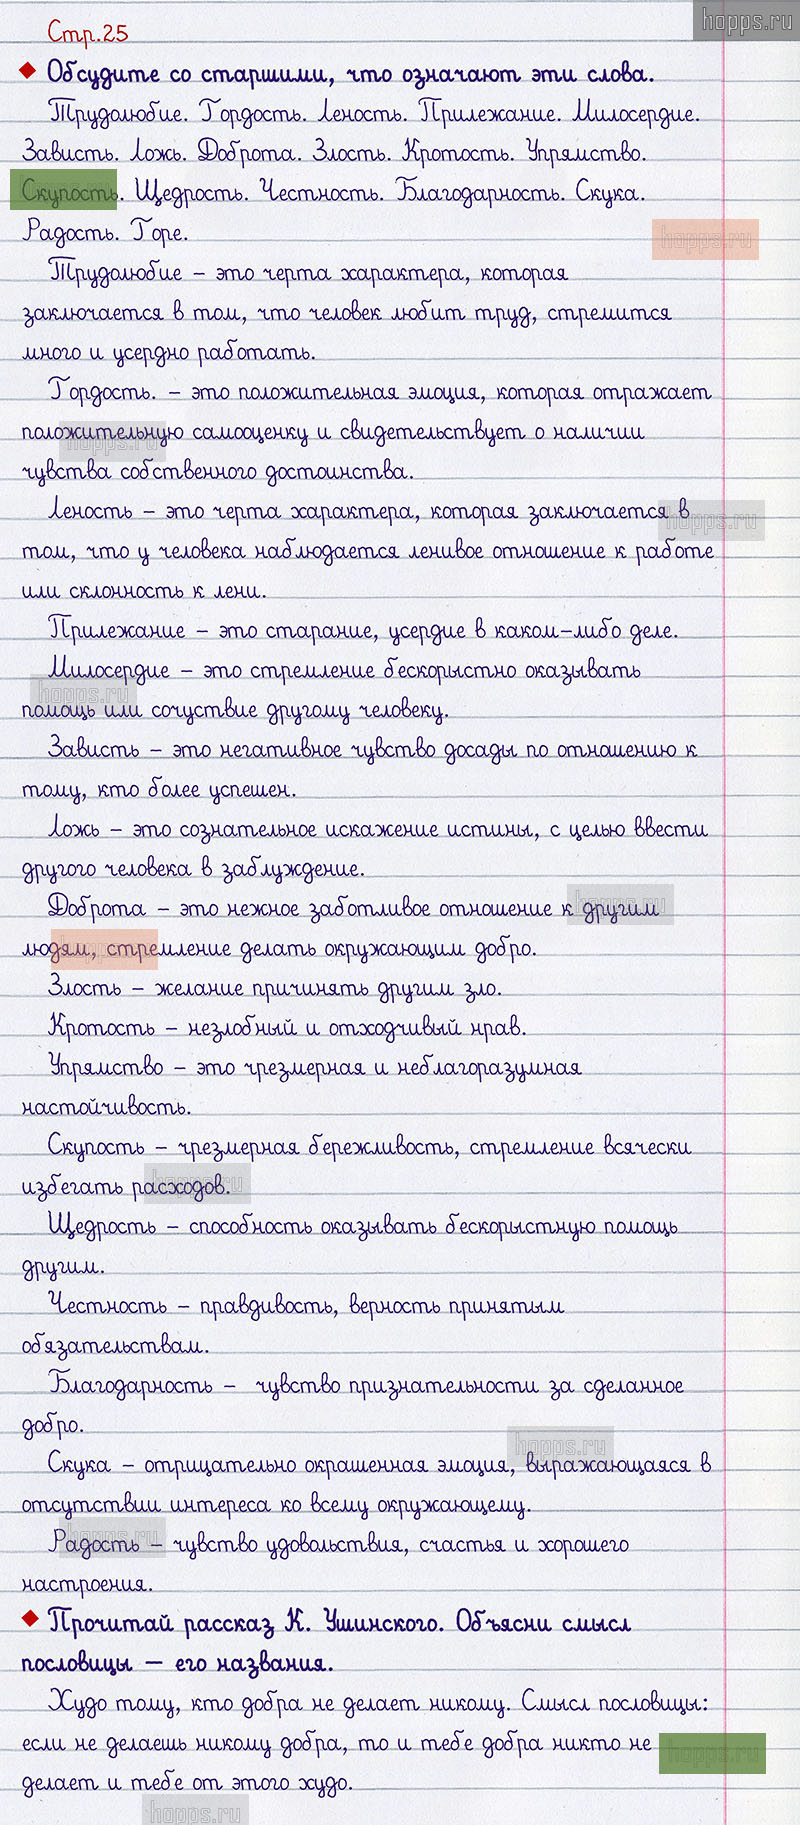 hopps.ru
Стр.25
Обсудите со старшими, что означают эти слова.
Трудолюбие. Гордость. Леность. Прилежание. Милосердие.
Зависть. Ложь. Доброта. Злость. Кротость. Упрямство.
Скупость. Щедрость. Честность. Благодарность. Скука.
Радость. Горе.
hopps.ru
Трудолюбие – это черта характера, которая
заключается в том, что человек любит труд, стремится
много и усердно работать.
Гордость. – это положительная эмоция, которая отражает
положительную самооценку и свидетельствует о наличии
hopps.ru
чувства собственного достоинства.
Леность – это черта характера, которая заключается в
hopps.ru
том, что у человека наблюдается ленивое отношение к работе
или склонность к лени.
Прилежание – это старание, усердие в каком-либо деле.
Милосердие – это стремление бескорыстно оказывать
hopps.ru
помощь или сочуствие другому человеку.
Зависть – это негативное чувство досады по отношению к
тому, кто более успешен.
Ложь – это сознательное искажение истины, с целью ввести
другого человека в заблуждение.
Доброта – это нежное заботливое отношение к другим
hopps.ru
людям, стремление делать окружающим добро.
hopps.ru
Злость – желание причинять другим зло.
Кротость – незлобный и отходчивый нрав.
Упрямство – это чрезмерная и неблагоразумная
настойчивость.
Скупость – чрезмерная бережливость, стремление всячески
избегать расходов.
hopps.ru
Щедрость – способность оказывать бескорыстную помощь
другим.
Честность – правдивость, верность принятым
обязательствам.
Благодарность – чувство признательности за сделанное
добро.
hopps.ru
Скука – отрицательно окрашенная эмоция, выражающаяся в
отсутствии интереса ко всему окружающему.
Радость – чувство удовольствия, счастья и хорошего
hopps.ru
настроения.
Прочитай рассказ К. Ушинского. Объясни смысл
пословицы – его названия.
Худо тому, кто добра не делает никому. Смысл пословицы:
если не делаешь никому добра, то и тебе добра никто не
hopps.ru
делает и тебе от этого худо.
hopps.ru